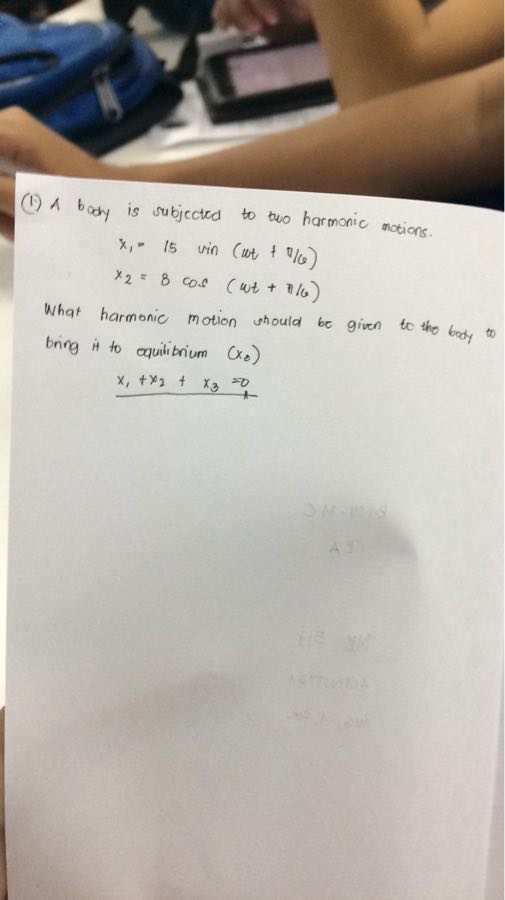 (1) A body is subjected to two harmonic motions.
x₁ = 15 sin (ωt + π/6)
x₂ = 8 cos (ωt + π/6)
What harmonic motion should be given to the body to
bring it to equilibrium (x₃)
x₁ + x₂ + x₃ = 0